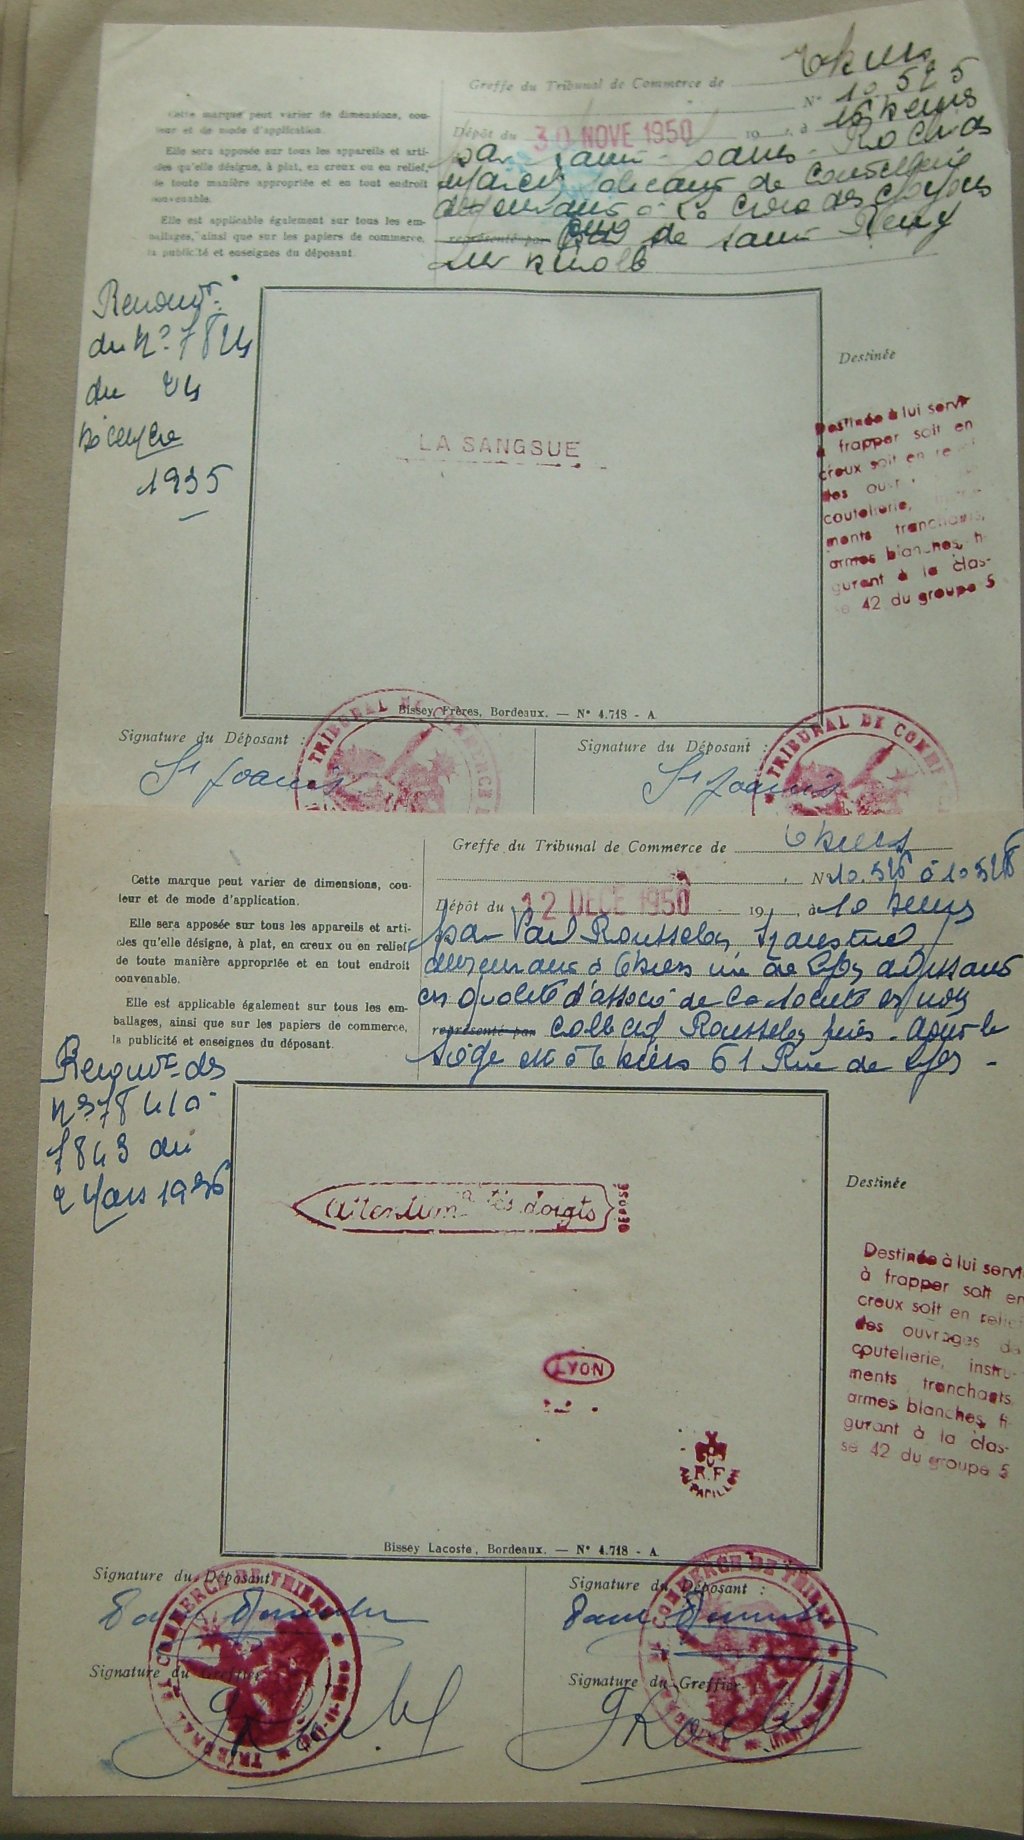 Greffe du Tribunal de Commerce de Thiers
N° 10.525
Dépôt du 30 NOVE 1950 19 , à 16 heures
par
de coutellerie
de Saint Remy
sur Durolle
Cette marque peut varier de dimensions, cou-
leur et de mode d'application.
Elle sera apposée sur tous les appareils et arti-
cles qu'elle désigne, à plat, en creux ou en relief,
de toute manière appropriée et en tout endroit
convenable.
Elle est applicable également sur tous les em-
ballages, ainsi que sur les papiers de commerce,
la publicité et enseignes du déposant.
représenté par
Renouvt
du N° 7824
du 24
Décembre
1935
LA SANGSUE
Destinée
Destinée à lui servir
à frapper soit en
creux soit en
des
coutellerie,
ments tranchants,
armes blanches, fi-
gurant à la clas-
se 42 du groupe 5
Bissey Frères, Bordeaux. — N° 4.718 - A.
Signature du Déposant :
St Joanis
Signature du Déposant :
St Joanis
TRIBUNAL DE COMMERCE
TRIBUNAL DE COMMERCE
Greffe du Tribunal de Commerce de Thiers
N° 10.526 à 10528
Dépôt du 12 DECE 1950 19 , à 10 heures
par Paul Rousselon Industriel
demeurant à Thiers agissant
en qualité d'associé de la Société en nom
représenté par collectif Rousselon frères. dont le
siège est à Thiers 61 Rue de
Cette marque peut varier de dimensions, cou-
leur et de mode d'application.
Elle sera apposée sur tous les appareils et arti-
cles qu'elle désigne, à plat, en creux ou en relief,
de toute manière appropriée et en tout endroit
convenable.
Elle est applicable également sur tous les em-
ballages, ainsi que sur les papiers de commerce,
la publicité et enseignes du déposant.
Renouvt des
7843 du
2 Mars 1936
attention à tes doigts
DEPOSÉ
LYON
R.F
PAPILLON
Destinée
Destinée à lui servir
à frapper soit en
creux soit en relief
des ouvrages de
coutellerie, instru-
ments tranchants,
armes blanches, fi-
gurant à la clas-
se 42 du groupe 5
Bissey Lacoste, Bordeaux. — N° 4.718 - A.
Signature du Déposant
Signature du Déposant :
Signature du Greffier
Signature du Greffier
TRIBUNAL DE COMMERCE DE THIERS
COMMERCE DE THIERS